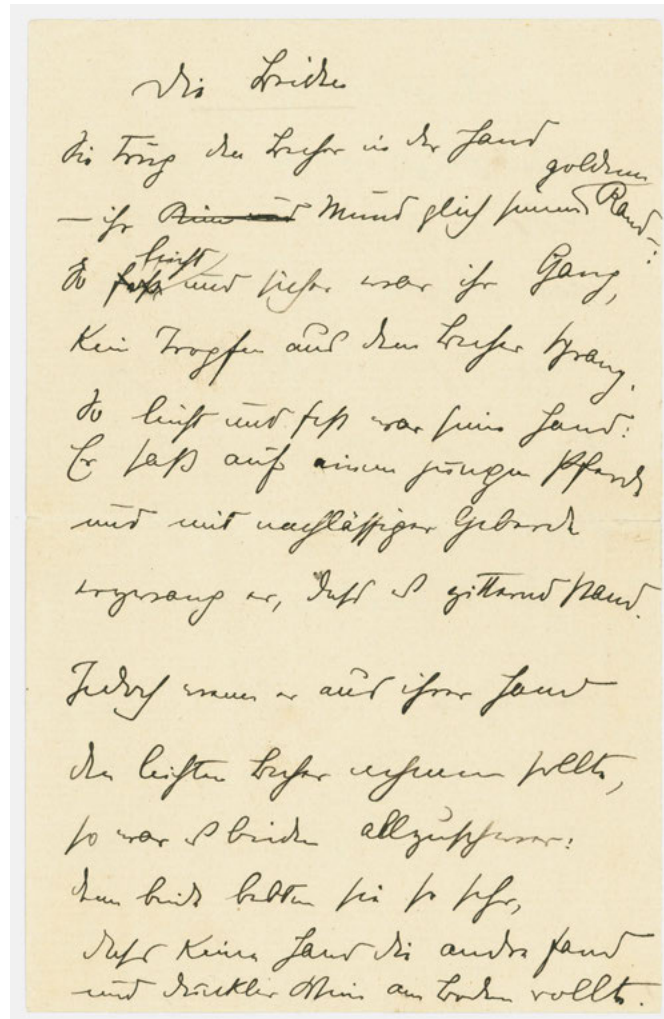 Die Beiden
Sie trug den Becher in der Hand
goldnem
– ihr Kinn und Mund glich seinem Rand –:
leicht
So fest und sicher war ihr Gang,
Kein Tropfen aus dem Becher sprang.
So leicht und fest war seine Hand:
Er saß auf einem jungen Pferde
und mit nachlässiger Geberde
erzwang er, dass es zitternd stand.
Jedoch wenn er aus ihrer Hand
den leichten Becher nehmen sollte,
so war es beiden allzuschwer:
denn beide bebten sie so sehr,
dass keine Hand die andre fand
und dunkler Wein am Boden rollte.